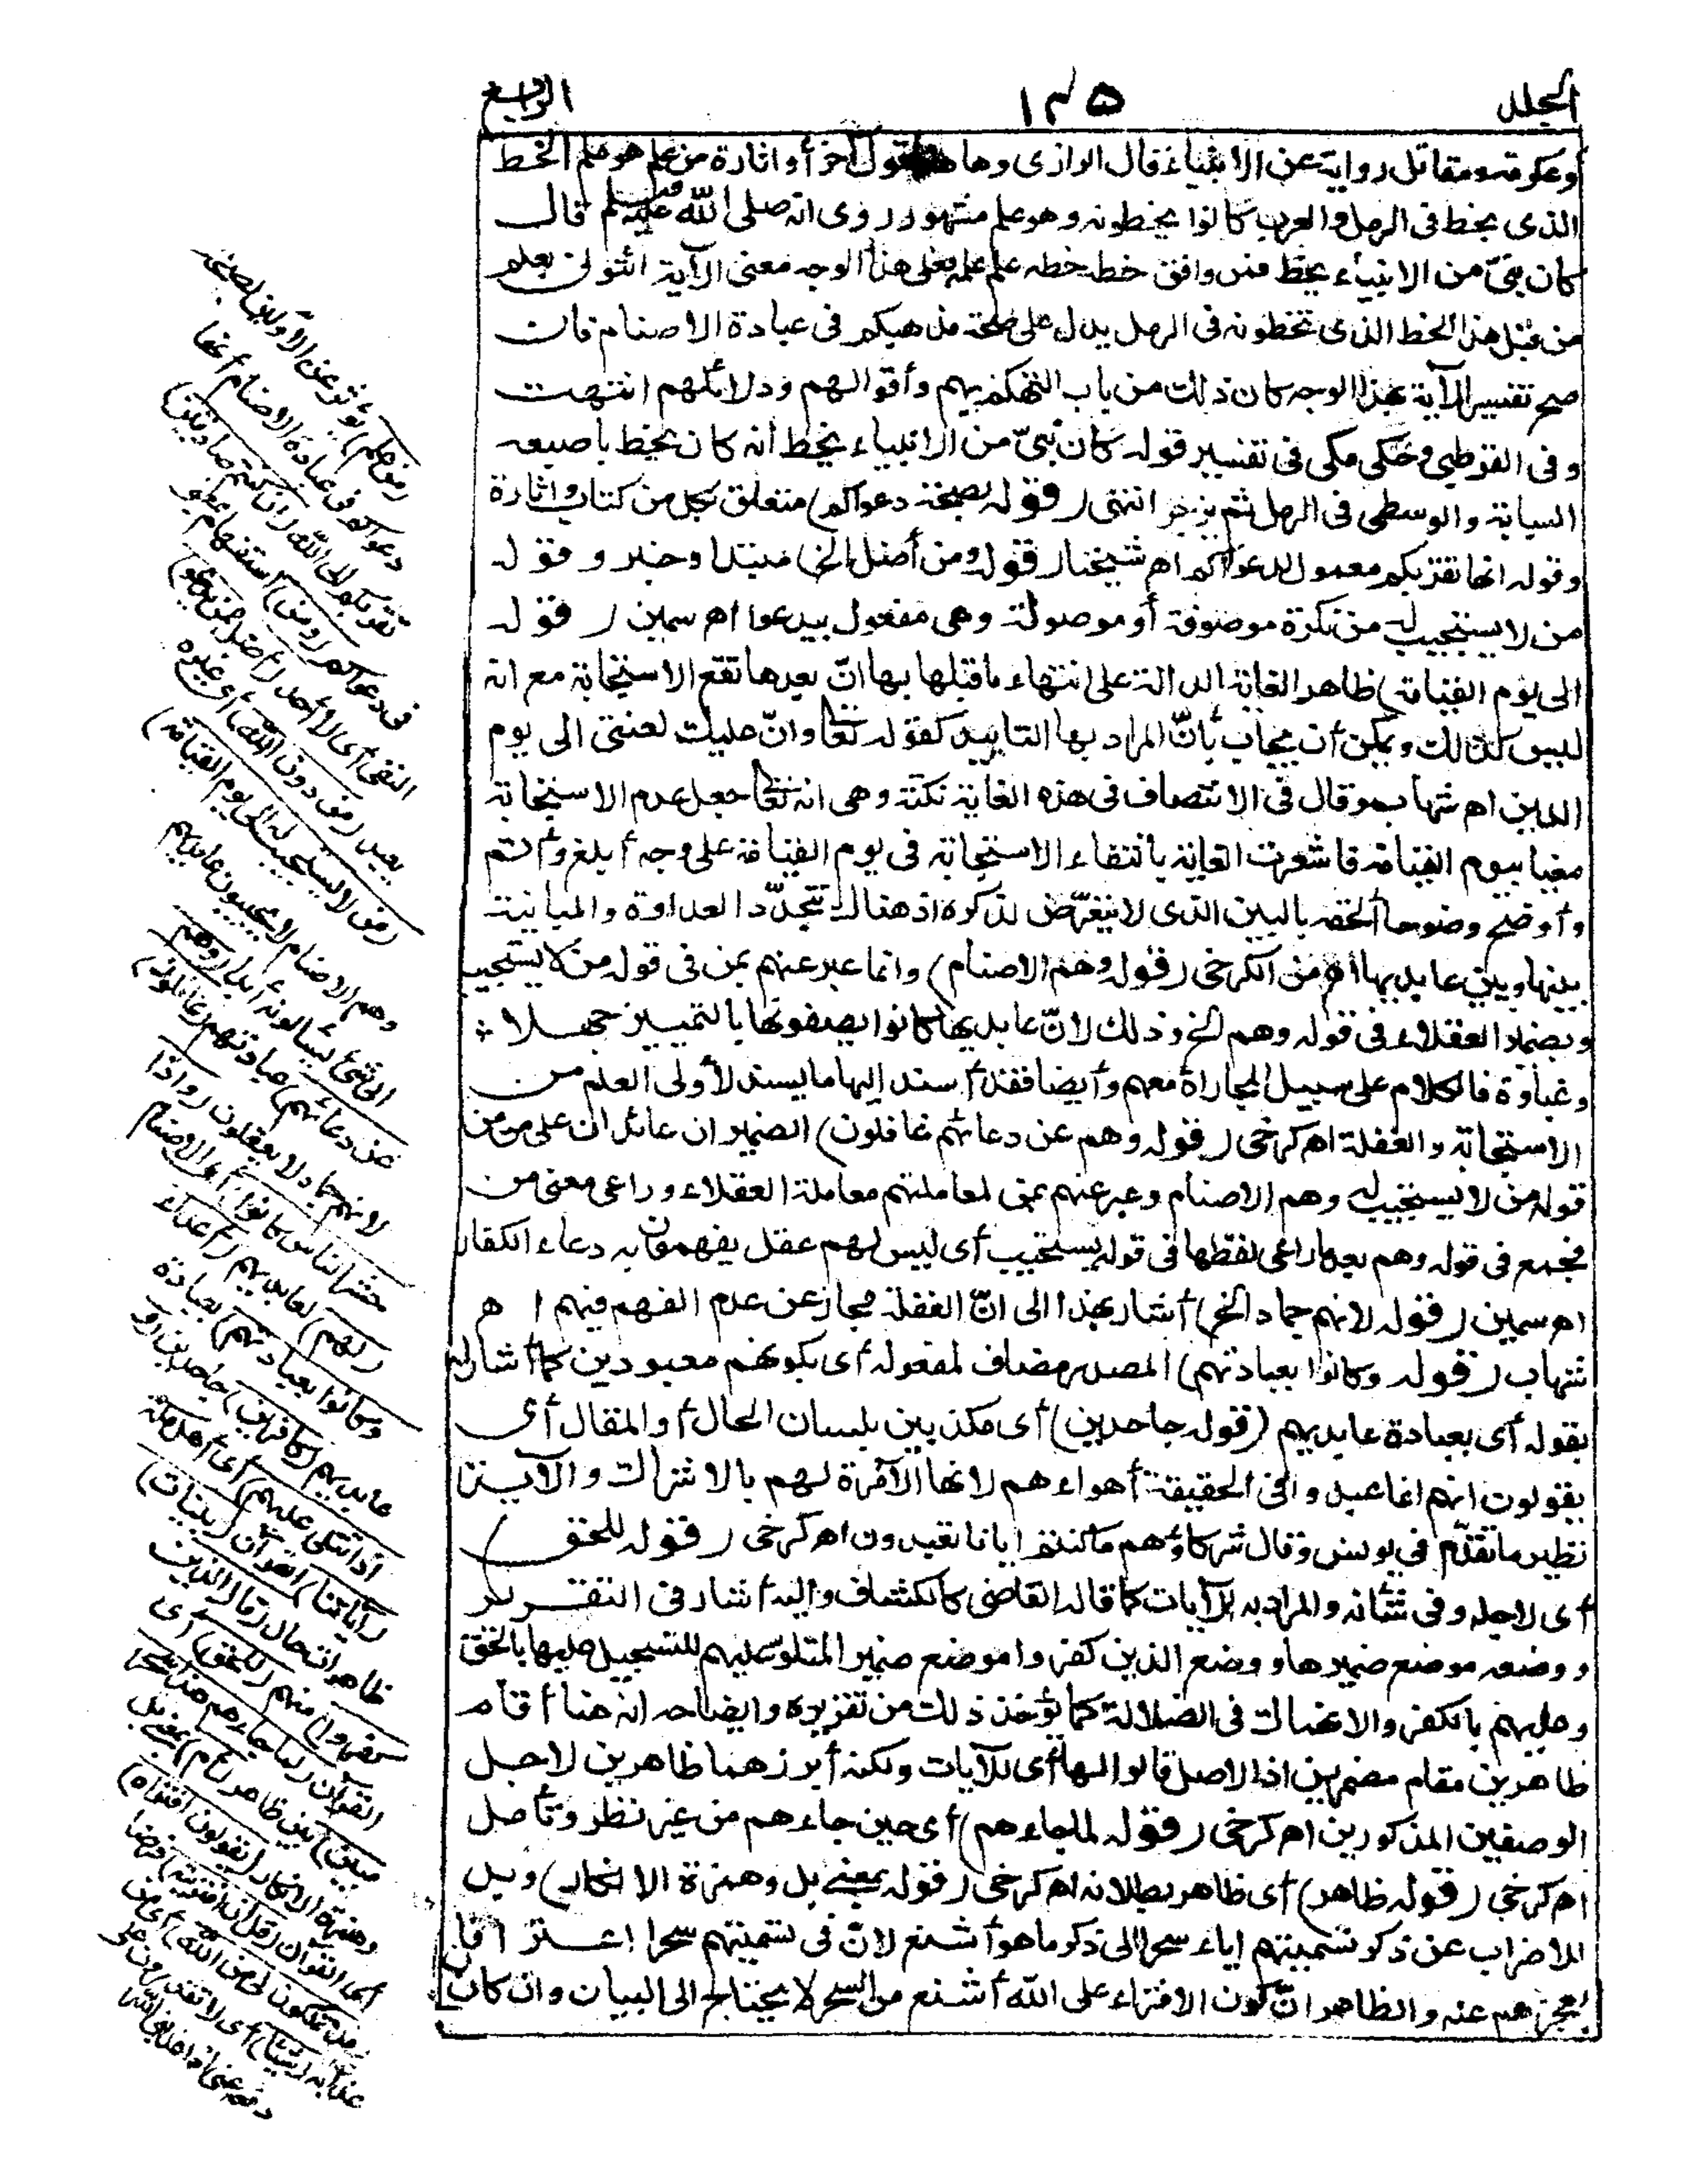 الجلد ١٣٥ الرابع
وعكرمة ومقاتل رواية عن الانبياء قال الرازى وها هنا قول آخر أو اثارة من علم هو علم الخط
الذى يخط فى الرمل والعرب كانوا يخطونه وهو علم مشهور روى انه صلى الله عليه وسلم قال
كان نبىّ من الانبياء يخط فمن وافق خطه خطه علم علمه فعلى هذا الوجه معنى الآية ائتونى بعلم
من قبل هذا الخط الذى تخطونه فى الرمل يدل على صحة مذهبكم فى عبادة الاصنام فان
صح تفسير الآية بهذا الوجه كان ذلك من باب التهكم بهم وأقوالهم ودلائلهم انتهت
وفى القرطبي وحكى مكى فى تفسير قوله كان نبىّ من الانبياء يخط انه كان يخط باصبعه
السبابة والوسطى فى الرمل ثم يزجر انتهى (قوله بصحة دعواكم) متعلق بكل من كتاب واثارة
وقوله انها تقربكم معمول لدعواكم اه شيخنا (قوله ومن أضل الخ) مبتدا وخبر وقوله
من لا يستجيب له من نكرة موصوفة أو موصولة وهى مفعول بيدعوا اه سمين (قوله
الى يوم القيامة) ظاهر الغاية الدالة على انتهاء ما قبلها بها انّ بعدها تقع الاستجابة مع انه
ليس كذلك ويمكن أن يجاب بأنّ المراد بها التابيد كقوله تعالى وانّ عليك لعنتى الى يوم
الدين اه شهاب وقال فى الانتصاف فى هذه الغاية نكتة وهى انه تعالى جعل عدم الاستجابة
مغيا بيوم القيامة فاشعرت الغاية بانتفاء الاستجابة فى يوم القيامة على وجه أبلغ وأتم
وأوضح وضوحا ألحقه بالبين الذى لا يتعرّض لذكره اذ هناك تتجدّد العداوة والمباينة
بينها وبين عابديها اه من الكرخى (قوله وهم الاصنام) وانما عبر عنهم بمن فى قوله من لا يستجيب
وبضمير العقلاء فى قوله وهم الخ وذلك لانّ عابديها كانوا يصفونها بالتمييز جهلا
وغباوة فالكلام على سبيل المجاراة معهم وأيضا فقد أسند إليها ما يسند لأولى العلم من
الاستجابة والغفلة اه كرخى (قوله وهم عن دعائهم غافلون) الضميران عائدان على من من
قوله من لا يستجيب له وهم الاصنام وعبر عنهم بمن لمعاملتهم معاملة العقلاء وراعى معنى من
فجمع فى قوله وهم بعد ما راعى لفظها فى قوله يستجيب أى ليس لهم عقل يفهمون به دعاء الكفار
اه سمين (قوله لانهم جماد الخ) أشار بهذا الى انّ الغفلة مجاز عن عدم الفهم فيهم ا ه
شهاب (قوله وكانوا بعبادتهم) المصدر مضاف لمفعوله أى بكونهم معبودين كما أشار له
بقوله أى بعبادة عابديهم (قوله جاحدين) أى مكذبين بلسان الحال أو المقال أى
يقولون انهم انما عبدوا فى الحقيقة أهواءهم لانها الآمرة لهم بالاشراك والآية
نظير ما تقدّم فى يونس وقال شركاؤهم ما كنتم ايانا تعبدون اه كرخى (قوله للحق)
أى لاجله وفى شأنه والمراد به الآيات كما قاله القاضى كالكشاف واليه أشار فى التقرير
ووضعه موضع ضميرها ووضع الذين كفروا موضع ضمير المتلو عليهم للتسجيل عليها بالحق
وعليهم بالكفر والانهماك فى الضلالة كما يؤخذ ذلك من تقريره وايضاحه انه هنا أقام
ظاهرين مقام مضمرين اذ الاصل قالوا لها أى للآيات ولكنه أبرزهما ظاهرين لاجل
الوصفين المذكورين اه كرخى (قوله لما جاءهم) أى حين جاءهم من غير نظر وتأمل
اه كرخى (قوله ظاهر) أى ظاهر بطلانه اه كرخى (قوله بمعنى بل وهمزة الانكار) وبل
للاضراب عن ذكر تسميتهم اياه سحرا الى ذكر ما هو أشنع لانّ فى تسميتهم سحرا اعترافا
بعجزهم عنه والظاهر انّ كون الافتراء على الله أشنع من السحر لا يحتاج الى البيان وان كان
من علم) يؤثر عن الأولين بصحة
دعواكم فى عبادة الاصنام أنها
تقربكم الى الله (ان كنتم صادقين)
فى دعواكم (ومن) استفهام بمعنى
النفى أى لا أحد (أضل ممن يدعو)
يعبد (من دون الله) أى غيره
(من لا يستجيب له الى يوم القيامة)
وهم الاصنام لا يجيبون عابديهم
الى شئ يسألونه أبدا (وهم
عن دعائهم) عبادتهم (غافلون)
لانهم جماد لا يعقلون (واذا
حشر الناس كانوا) أى الاصنام
(لهم) لعابديهم (أعداء
وكانوا بعبادتهم) بعبادة
عابديهم (كافرين) جاحدين (و
اذا تتلى عليهم) أى أهل مكة
(آياتنا) القرآن (بينات)
ظاهرات حال (قال الذين
كفروا) منهم (للحق) أى
القرآن (لما جاءهم هذا سحر
مبين) بين ظاهر (أم) بمعنى بل
وهمزة الانكار (يقولون افتراه)
أى القرآن (قل ان افتريته) فرضا
(فلا تملكون لى من الله) أى من
عذابه (شيئا) أى لا تقدرون على
دفعه عنى اذا عذبنى الله